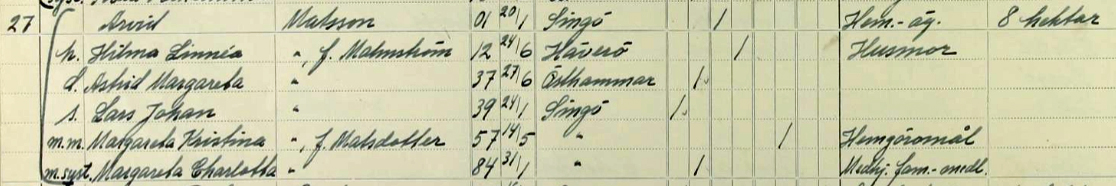 27 Arvid Matsson 01 20/1 Singö / Hem.-äg. 8 hektar
h. Hilma Linnéa ", f. Malmström 12 24/6 Häverö / Husmor
d. Astrid Margareta " 37 27/6 Östhammar /.
s. Lars Johan " 39 24/1 Singö /.
m.m. Margareta Kristina ", f. Matsdotter 57 14/5 " / Hemgöromål
m.syst. Margareta Charlotta " 84 31/1 " / Medhj. fam.-medl.